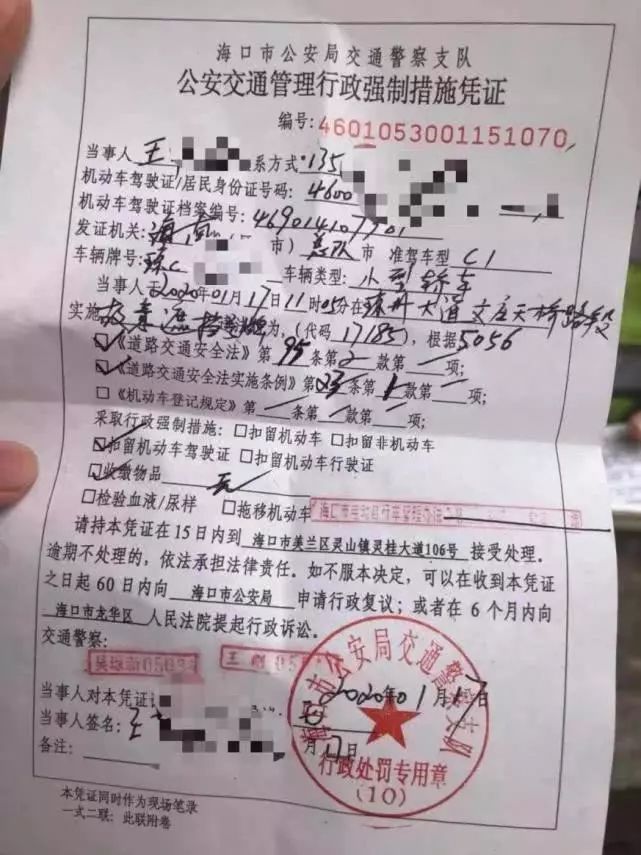 海口市公安局交通警察支队
公安交通管理行政强制措施凭证
编号:4601053001151070
当事人 王 系方式:135
机动车驾驶证/居民身份证号码:4600
机动车驾驶证档案编号:469014107701
发证机关:海南 市)总队市 准驾车型 C1
车辆牌号:琼C 车辆类型:小型轿车
当事人于2020年01月17日11时05分在琼州大道文庄天桥路段
实施故意遮挡号牌为,(代码17185),根据5056
☑《道路交通安全法》第95条第2款第一项;
☑《道路交通安全法实施条例》第23条第1款第一项;
□《机动车登记规定》第一条第一款第一项;
采取行政强制措施:□扣留机动车 □扣留非机动车
☑扣留机动车驾驶证 □扣留机动车行驶证
☑收缴物品 无
□检验血液/尿样 □拖移机动车
请持本凭证在15日内到 海口市美兰区灵山镇灵桂大道106号 接受处理。
逾期不处理的,依法承担法律责任。如不服本决定,可以在收到本凭证
之日起60日内向 海口市公安局 申请行政复议;或者在6个月内向
海口市龙华区 人民法院提起行政诉讼。
交通警察:
王 05
2020年01月17日
当事人对本凭证
当事人签名:王 月17日
备注:
海口市公安局交通警察支队
行政处罚专用章
(10)
本凭证同时作为现场笔录
一式二联:此联附卷